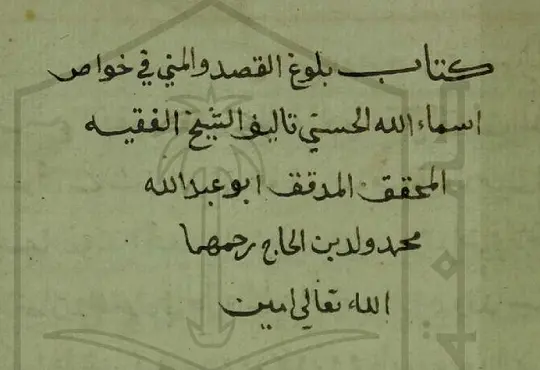 كتاب بلوغ القصد والمني في خواص
اسماء الله الحسني تاليف الشيخ الفقيه
المحقق المدقق ابو عبد الله
محمد ولد بن الحاج رحمهما
الله تعالي امين